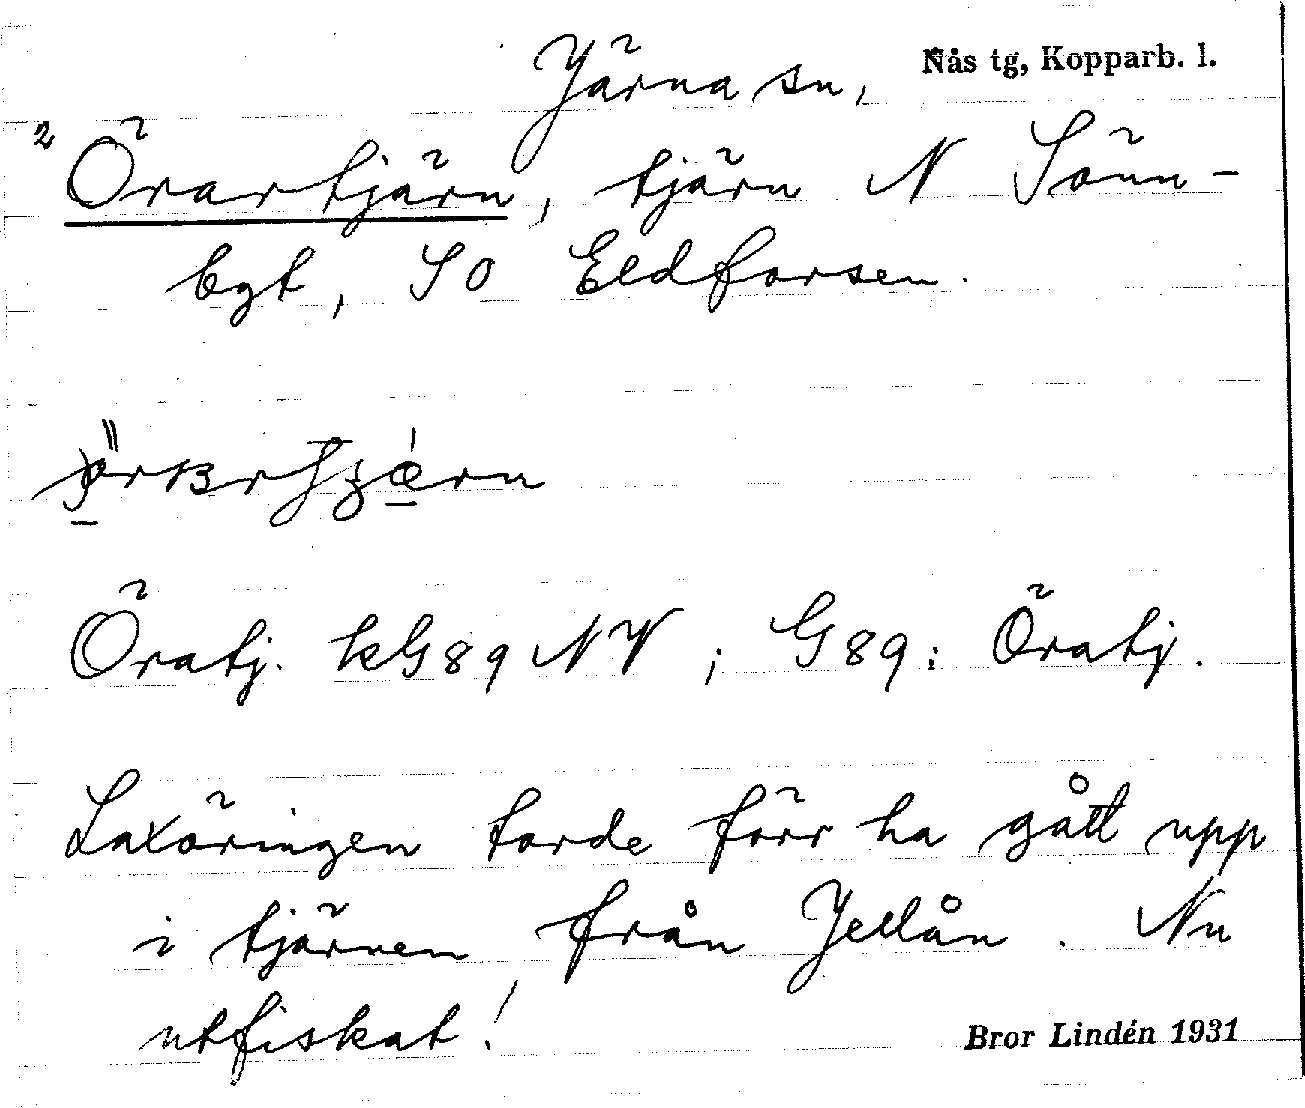 Järna sn, Nås tg, Kopparb. l.
2 Örartjärn, tjärn N Sönn-
bgt, SO Eldforsen.
Öratj. kG89NV; G89: Öratj.
Laxöringen torde förr ha gått upp
i tjärnen från Jellån. Nu
utfiskat!
Bror Lindén 1931